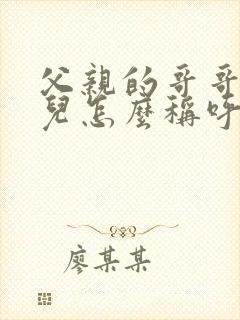 父親的哥哥
兒怎麼稱呼
廖某某